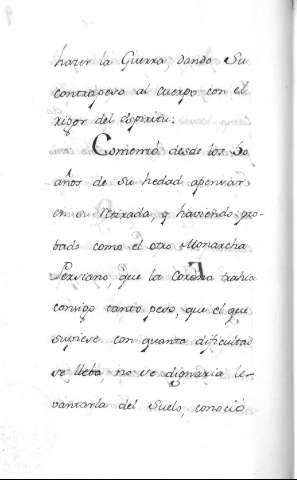 hazer la Guerra, dando su
contrapeso al cuerpo con el
rigor del espiritu.
Comenzó desde los 30
años de su hedad apensar
en su retirada, y haviendo pro-
bado como el otro Monarcha
Persiano, que la Corona trahia
consigo tanto peso, que el que
supiese con quanta dificulta
se lleba, no se dignaria le-
vantarla del suelo, conoció